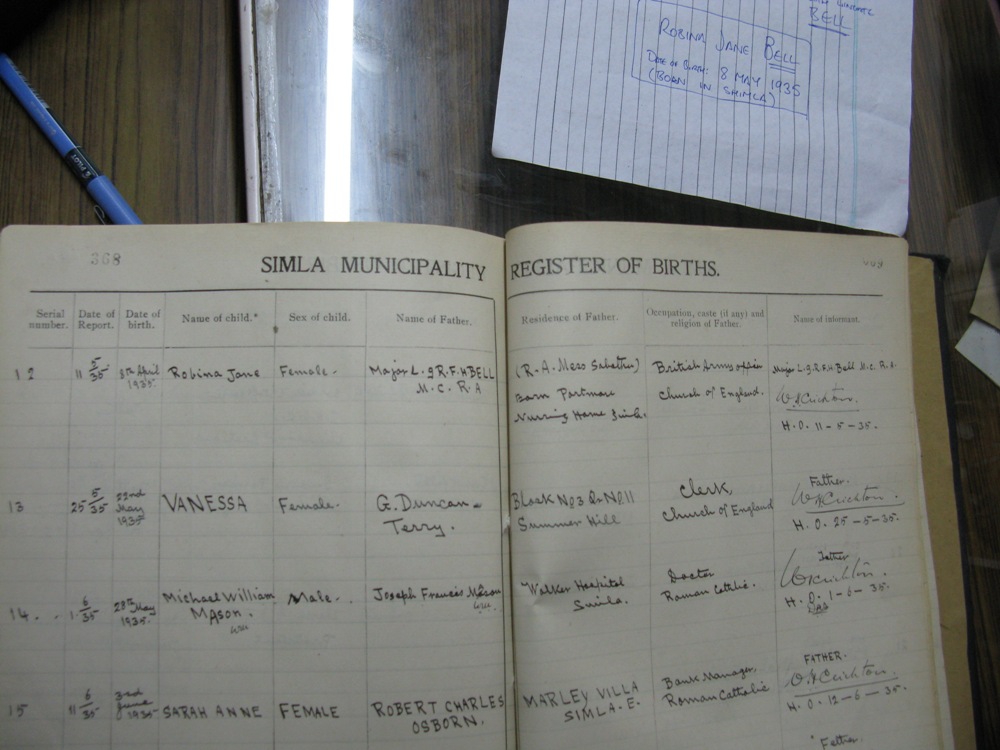 BELL
ROBINA JANE BELL
DATE OF BIRTH: 8 MAY 1935
(BORN IN SHIMLA)
PILOT
368
SIMLA MUNICIPALITY REGISTER OF BIRTHS.
Serial number. Date of Report. Date of birth. Name of child.* Sex of child. Name of Father. Residence of Father. Occupation, caste (if any) and religion of Father. Name of informant.
12 11 5/35 8th April 1935. Robina Jane Female- Major L.G.R.F.H BELL M.C. R.A (R.A. Mess Sabathu) Portmore Nursing Home Simla. British Army officer Church of England. Major L.G.R.F.H Bell M.C. R.A. W H Crichton. H.O. 11-5-35.
13 25 5/35 22nd May 1935 VANESSA Female- G. Duncan- Terry. Block No 3 Q. No 11 Summer Hill Clerk, Church of England Father. W H Crichton. H.O. 25-5-35.
14.. 1 6/35 28th May 1935. Michael William MASON. Male- Joseph Francis Mason Walker Hospital Simla. Doctor Roman Catholic. Father W H Crichton. H.O. 1-6-35.
15 11 6/35 3rd June 1935 SARAH ANNE FEMALE ROBERT CHARLES OSBORN. MARLEY VILLA SIMLA-E. Bank Manager, Roman Catholic FATHER. W H Crichton. H.O. 12-6-35.
Father.